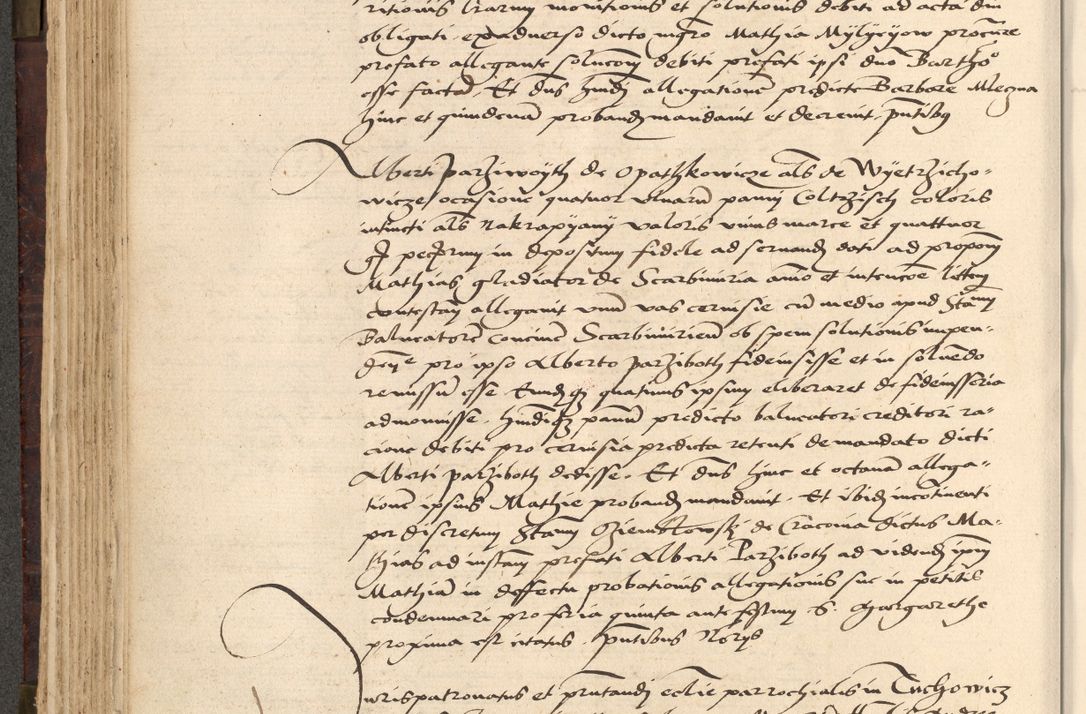 ritionis lrarum monitionis et solutionis debiti ad acta dni
obligati. exadverso dicto mgro Mathia Mylyeyow procure
prefato allegante solucoem debiti prefati ipsi dno Bartho
esse factam. Et dns hmdi allegationem predicte Barbore
hinc et quindenam probandi mandavit et decrevit. pntibus
Alberti Parziwoyth de Opathkowicze als de Wyetrzicho-
wicze ocasione quatuor ulnarum panni Coltzisch coloris
als nakrapyany valoris unius marce et quattuor
gr pecfrum in depositum fidele ad servandi dati ad proponem
Mathias gladiator de Scarbimiria animo et intencoe litem
contestan allegavit unum vas cervisie cum medio apud Stanm
Balneatorem concivem Scarbimirien ob spem solutionis impen-
pro ipso Alberto Parziboth fideiusisse et in solvendo
remissum esse Eundi qz quatinus ipsum eliberaret de fideiusseria
admonuisse. hmdiqz pannum predicto balneatori creditori ra-
cione debiti pro cervisia predicta retenti de mandato dicti
Alberti Parziboth dedisse. Et dns hinc et octavam allega-
tionem ipsius Mathie probandi mandavit. Et ibidi incotinenti
per discretum Stanm Oziembkowskj de Cracovia dictus Ma-
thias ad instam prefati Alberti Parziboth ad videndi ipm
Mathiam in deffectu probationis allegationis sue in petitis
condemnari pro feria quinta ante festum S. Margarethe
proxima est citatus. pntibus Noryb
Jurispatronatus et pntandi eclie parrochialis in Tuchowicz